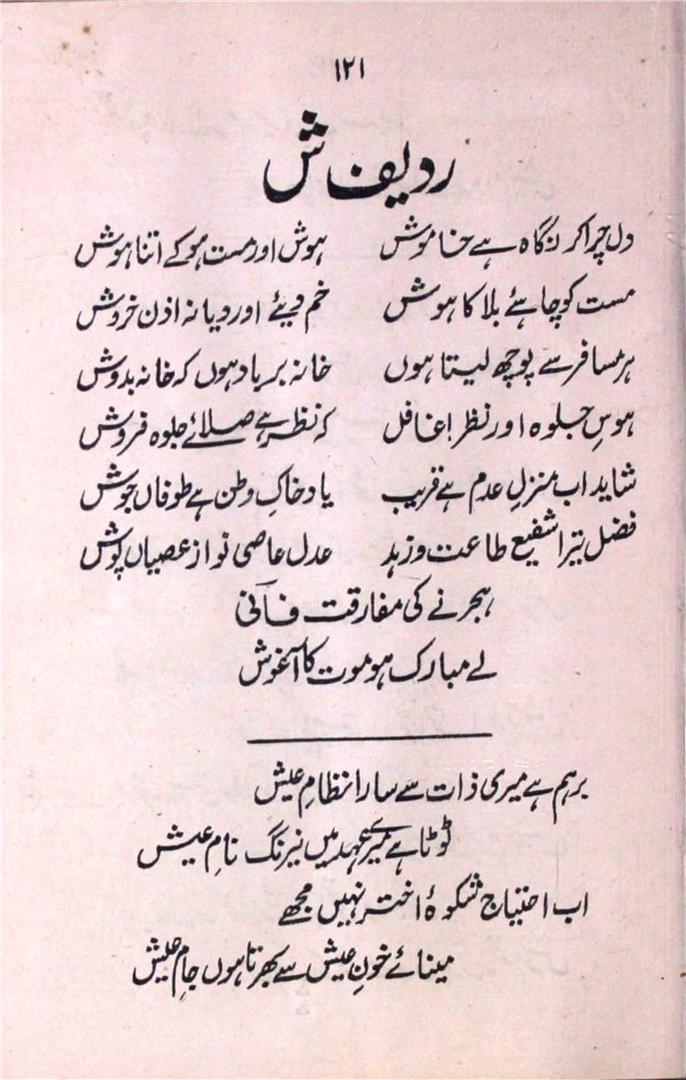 ۱۲۱
ردیف ش
دل چرا کر نگاہ ہے خاموش ہوش اور مست ہو کے اتنا ہوش
مست کو چاہئے بلا کا ہوش خم دیئے اور دیا نہ اذن خروش
ہر مسافر سے پوچھ لیتا ہوں خانہ برباد ہوں کہ خانہ بدوش
ہوسِ جلوہ اور نظر! غافل کہ نظر ہے صلائے جلوہ فروش
شاید اب منزلِ عدم ہے قریب یاد خاکِ وطن ہے طوفاں جوش
فضل تیرا شفیع طاعت و زہد عدل عاصی نواز عصیاں پوش
ہجر نے کی مفارقت فانی
لے مبارک ہو موت کا آغوش
برہم ہے میری ذات سے سارا نظامِ عیش
ٹوٹا ہے میرے عہد میں نیرنگ نامِ عیش
اب احتیاج شکوۂ اختر نہیں مجھے
مینائے خونِ عیش سے بھرتا ہوں جامِ عیش